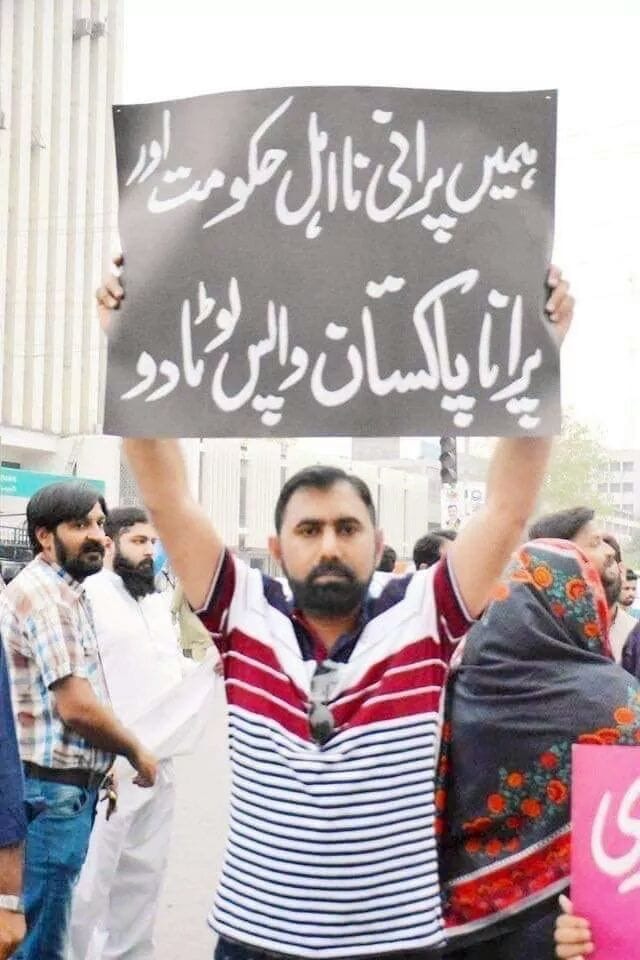 ہمیں پرانی نااہل حکومت اور
پرانا پاکستان واپس لوٹا دو